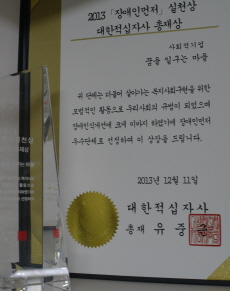 2013 「장애인먼저」 실천상
대한적십자사 총재상
사회적기업
꿈을 일구는 마을
위 단체는 더불어 살아가는 복지사회구현을 위한
모범적인 활동으로 우리사회의 귀범이 되었으며
장애인식개선에 크게 이바지 하였기에 장애인먼저
우수단체로 선정하여 이 상장을 드립니다.
2013년 12월 11일
대한적십자사
총재 유중근